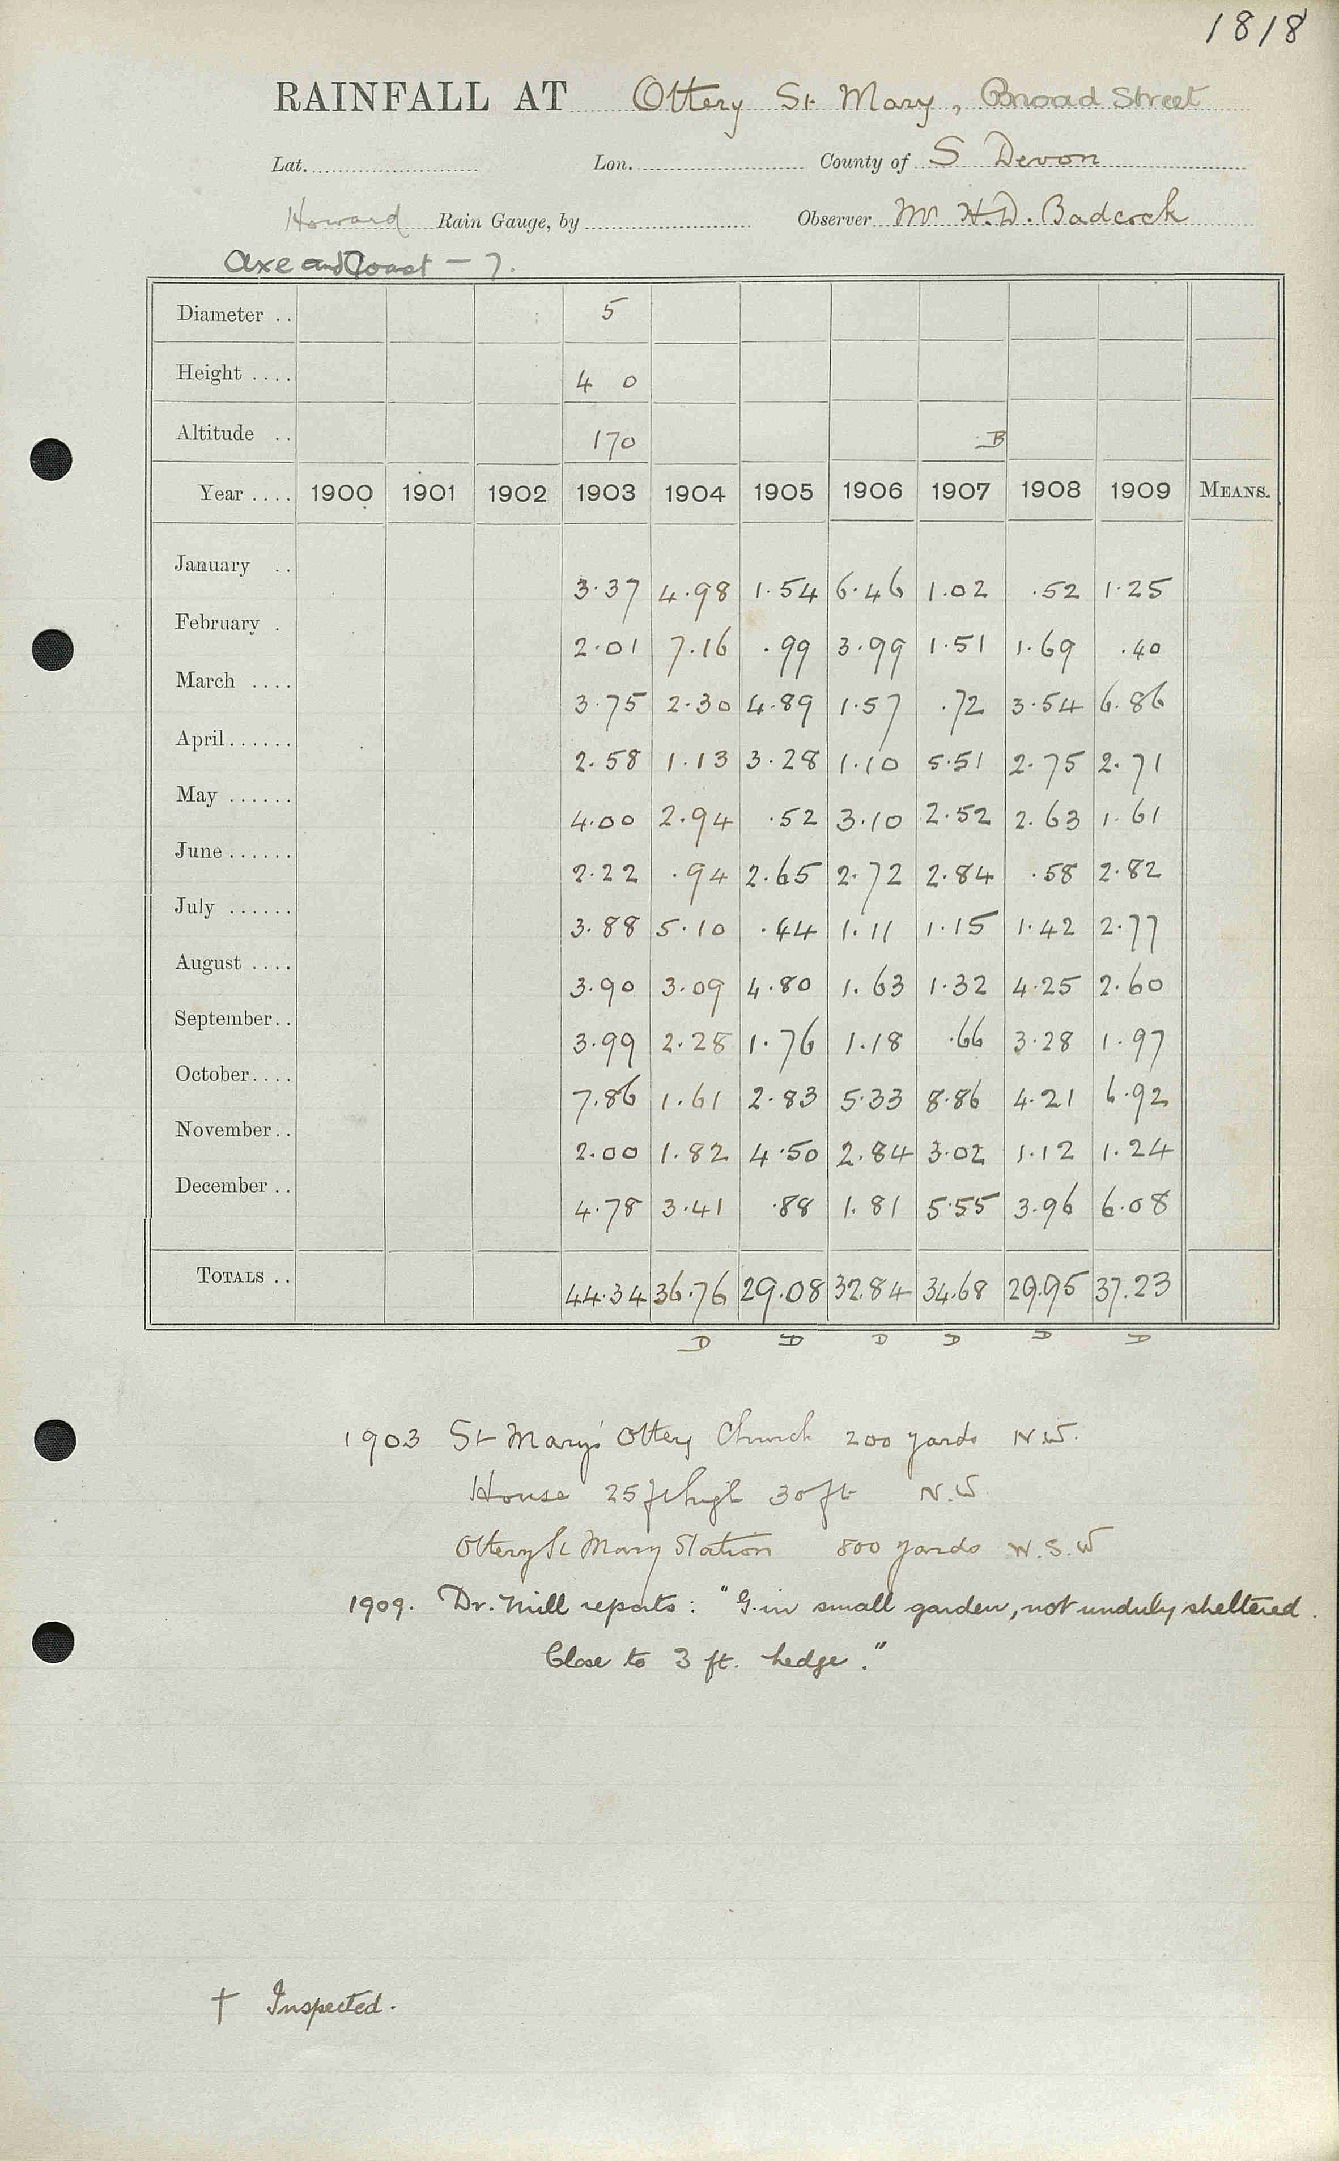 1818
RAINFALL AT Ottery St Mary, Broad Street
Lat. Lon. County of S Devon
Howard Rain Gauge, by Observer Mr H.D. Badcock
Axe and Coast - 7.
Diameter .. 5
Height .... 4 0
Altitude .. 170 B
Year .... 1900 1901 1902 1903 1904 1905 1906 1907 1908 1909 MEANS.
January .. 3.37 4.98 1.54 6.46 1.02 .52 1.25
February . 2.01 7.16 .99 3.99 1.51 1.69 .40
March .... 3.75 2.30 4.89 1.57 .72 3.54 6.86
April...... 2.58 1.13 3.28 1.10 5.51 2.75 2.71
May ...... 4.00 2.94 .52 3.10 2.52 2.63 1.61
June...... 2.22 .94 2.65 2.72 2.84 .58 2.82
July ...... 3.88 5.10 .44 1.11 1.15 1.42 2.77
August .... 3.90 3.09 4.80 1.63 1.32 4.25 2.60
September.. 3.99 2.28 1.76 1.18 .66 3.28 1.97
October.... 7.86 1.61 2.83 5.33 8.86 4.21 6.92
November.. 2.00 1.82 4.50 2.84 3.02 1.12 1.24
December .. 4.78 3.41 .88 1.81 5.55 3.96 6.08
TOTALS .. 44.34 36.76 29.08 32.84 34.68 29.95 37.23
D D D D D D
1903 St Mary's Ottery Church 200 yards N.W.
House 25 ft high 30 ft N.W
Ottery St Mary Station 800 yards W.S.W
1909. Dr. Mill reports: "G. in small garden, not unduly sheltered.
Close to 3 ft. hedge."
† Inspected.